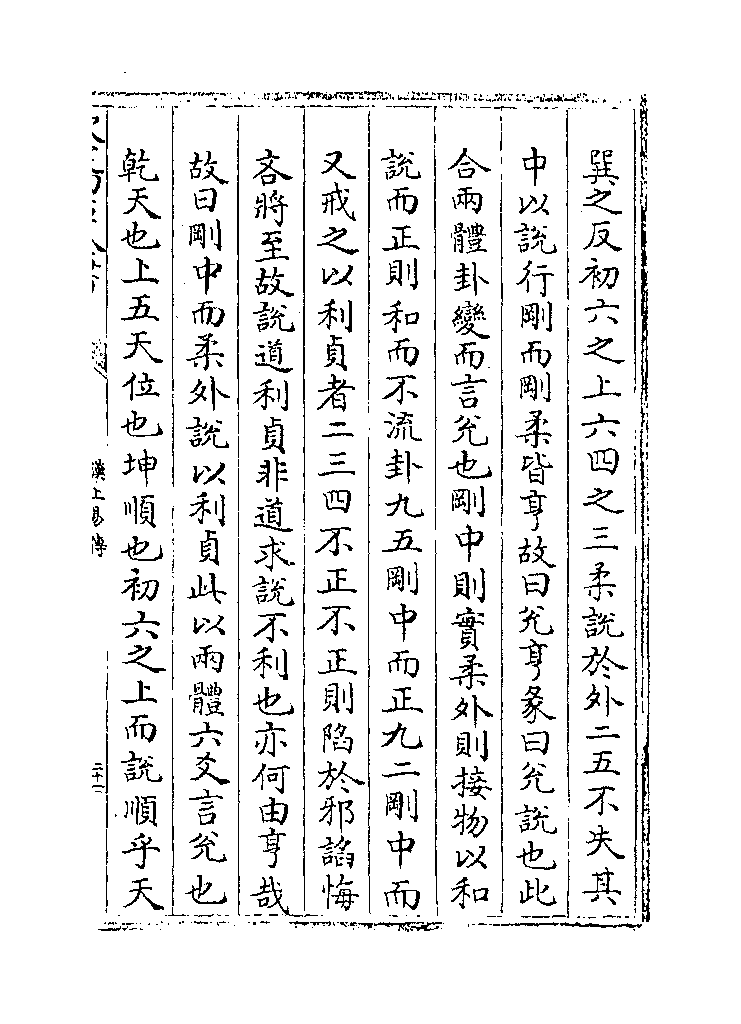 巽之反初六之上六四之三柔說於外二五不失其
中以說行剛而剛柔皆亨故曰兊亨彖曰兊說也此
合兩體卦變而言兊也剛中則實柔外則接物以和
說而正則和而不流卦九五剛中而正九二剛中而
又戒之以利貞者二三四不正不正則陷於邪諂悔
吝將至故說道利貞非道求說不利也亦何由亨哉
故曰剛中而柔外說以利貞此以兩體六爻言兊也
乾天也上五天位也坤順也初六之上而說順乎天
漢上易傳
二十一